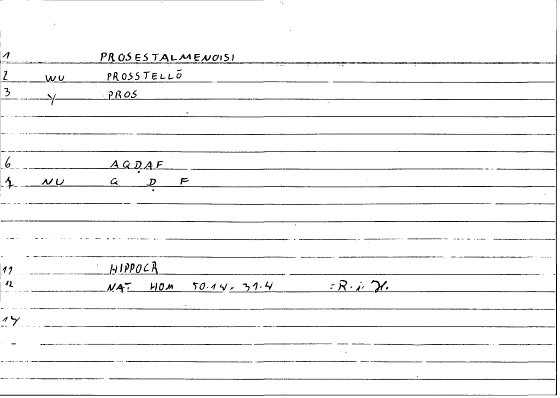 1 PROSESTALMENOISI
2 WU PROSSTELLŌ
3 Y PROS
6 AQḌAF
7 NU Q Ḍ F
11 HIPPOCR
12 NAT. HOM 50.14-31.4 =R.i.H.
14